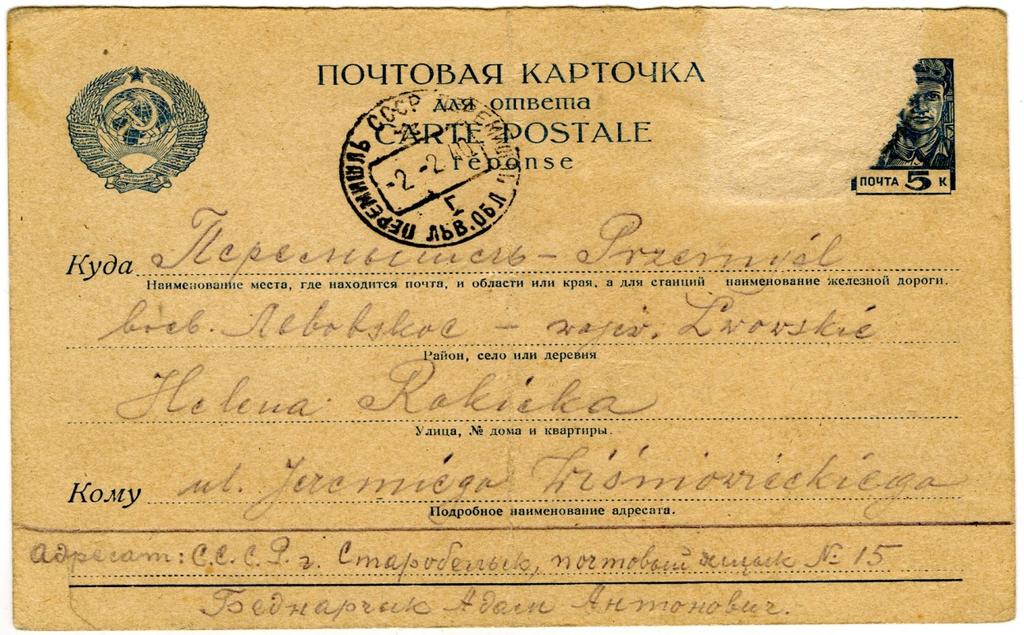 ПОЧТОВАЯ КАРТОЧКА
для ответа
CARTE POSTALE
réponse
СССР
ПЕРЕМИШЛЬ ЛЬВ.ОБЛ
-2.-2.40
ПОЧТА 5 К
Куда Перемышель - Przemyśl
Наименование места, где находится почта, и области или края, а для станций наименование железной дороги.
wojew. Lwowskie
Район, село или деревня
Helena Rokicka
Улица, № дома и квартиры.
Кому ul. Jeremiego Wiśniowieckiego
Подробное наименование адресата.
Адресат: С.С.С.Р. г. Старобельск, почтовый ящик № 15
Беднарчик Адам Антонович.